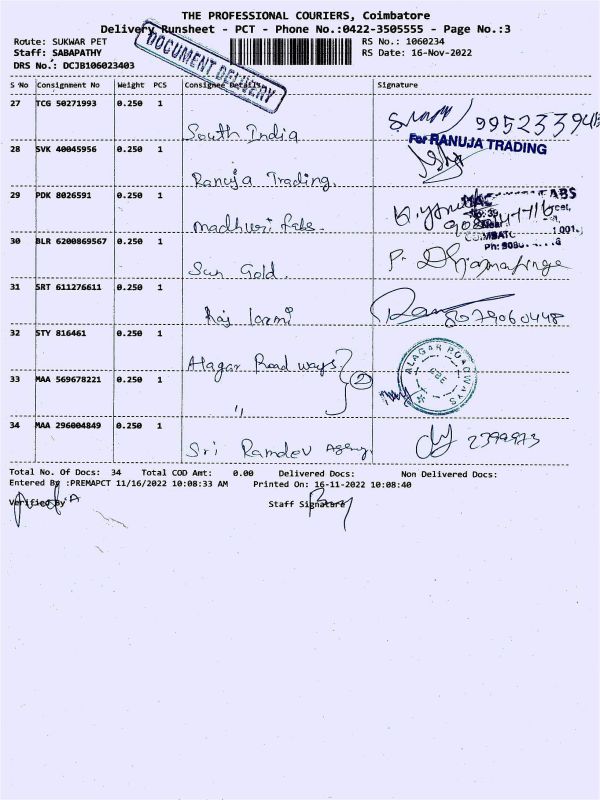 THE PROFESSIONAL COURIERS, Coimbatore
Delivery Runsheet - PCT - Phone No.:0422-3505555 - Page No.:3
Route: SUKWAR PET
RS No.: 1060234
Staff: SABAPATHY
RS Date: 16-Nov-2022
DRS No.: DCJB106023403
DOCUMENT DELIVERY
S No Consignment No Weight PCS Consignee Details Signature
27 TCG 50271993 0.250 1
South India 995233945
28 SVK 40045956 0.250 1
For RANUJA TRADING
Ranuja Trading.
29 PDK 8026591 0.250 1
Madhuri fabs.
30 BLR 6200869567 0.250 1
Sun Gold
31 SRT 611276611 0.250 1
Raj laxmi 8079060448
32 STY 816461 0.250 1
Alagar Road ways
ALAGAR ROADWAYS
CBE
33 MAA 569678221 0.250 1
" 2
34 MAA 296004849 0.250 1
Sri Ramdev Agency. 2399973
Total No. Of Docs: 34 Total COD Amt: 0.00 Delivered Docs: Non Delivered Docs:
Entered By :PREMAPCT 11/16/2022 10:08:33 AM Printed On: 16-11-2022 10:08:40
Verified By Staff Signature